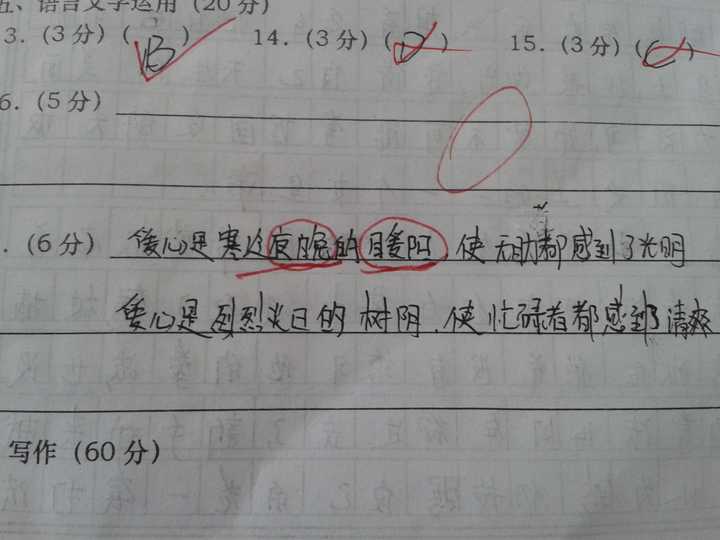 五、语言文字运用（20分）
3.（3分）（B） 14.（3分）（D） 15.（3分）（C）
6.（5分）
.（6分）爱心是寒冷夜晚的暖阳，使无助者都感到了光明
爱心是烈烈炎日的树阴，使忙碌者都感到了清爽
写作（60分）